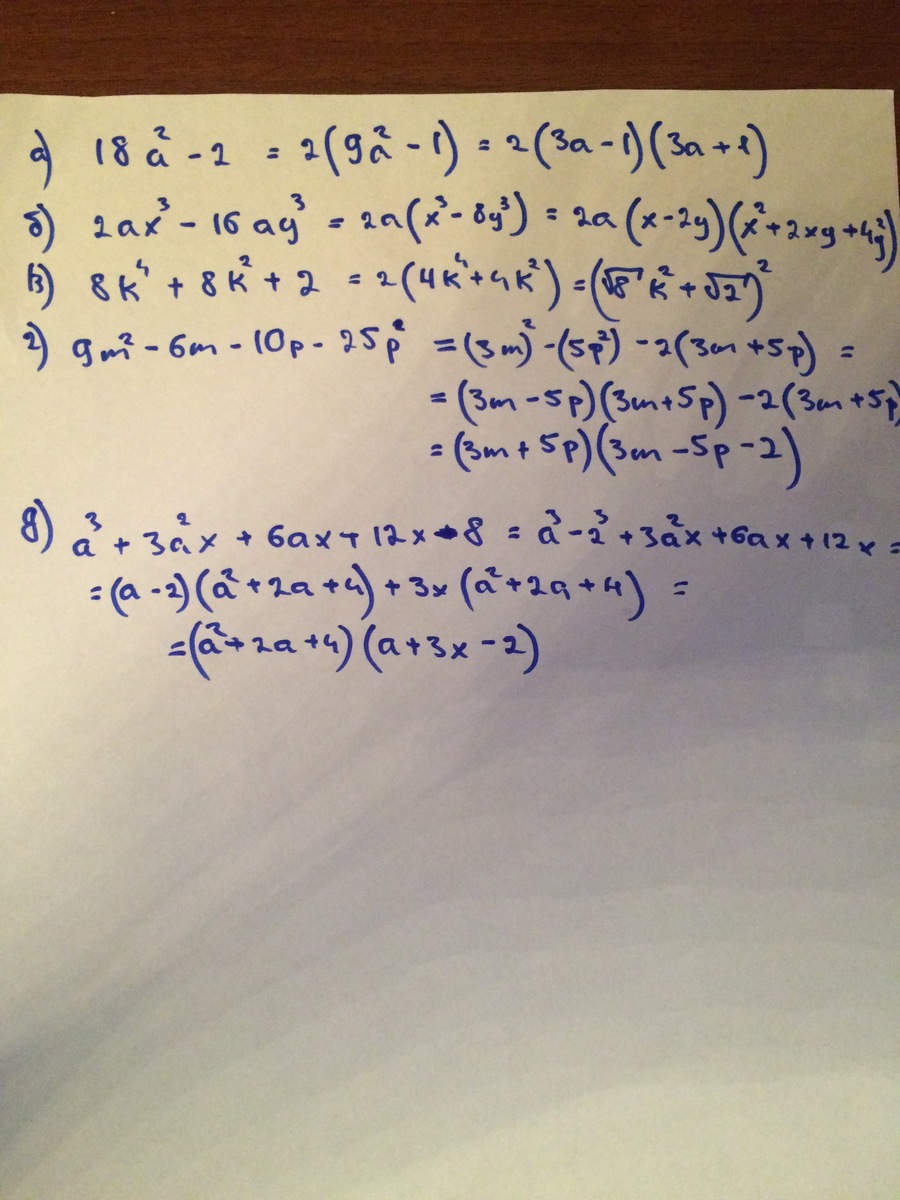 а) 18a² - 2 = 2(9a² - 1) = 2(3a - 1)(3a + 1)
б) 2ax³ - 16ay³ = 2a(x³ - 8y³) = 2a(x - 2y)(x² + 2xy + 4y²)
в) 8k⁴ + 8k² + 2 = 2(4k⁴ + 4k²) = (√8 k² + √2)²
г) 9m² - 6m - 10p - 25p² = (3m)² - (5p²) - 2(3m + 5p) =
= (3m - 5p)(3m + 5p) - 2(3m + 5p)
= (3m + 5p)(3m - 5p - 2)
д) a³ + 3a²x + 6ax + 12x - 8 = a³ - 2³ + 3a²x + 6ax + 12x =
= (a - 2)(a² + 2a + 4) + 3x(a² + 2a + 4) =
= (a² + 2a + 4)(a + 3x - 2)